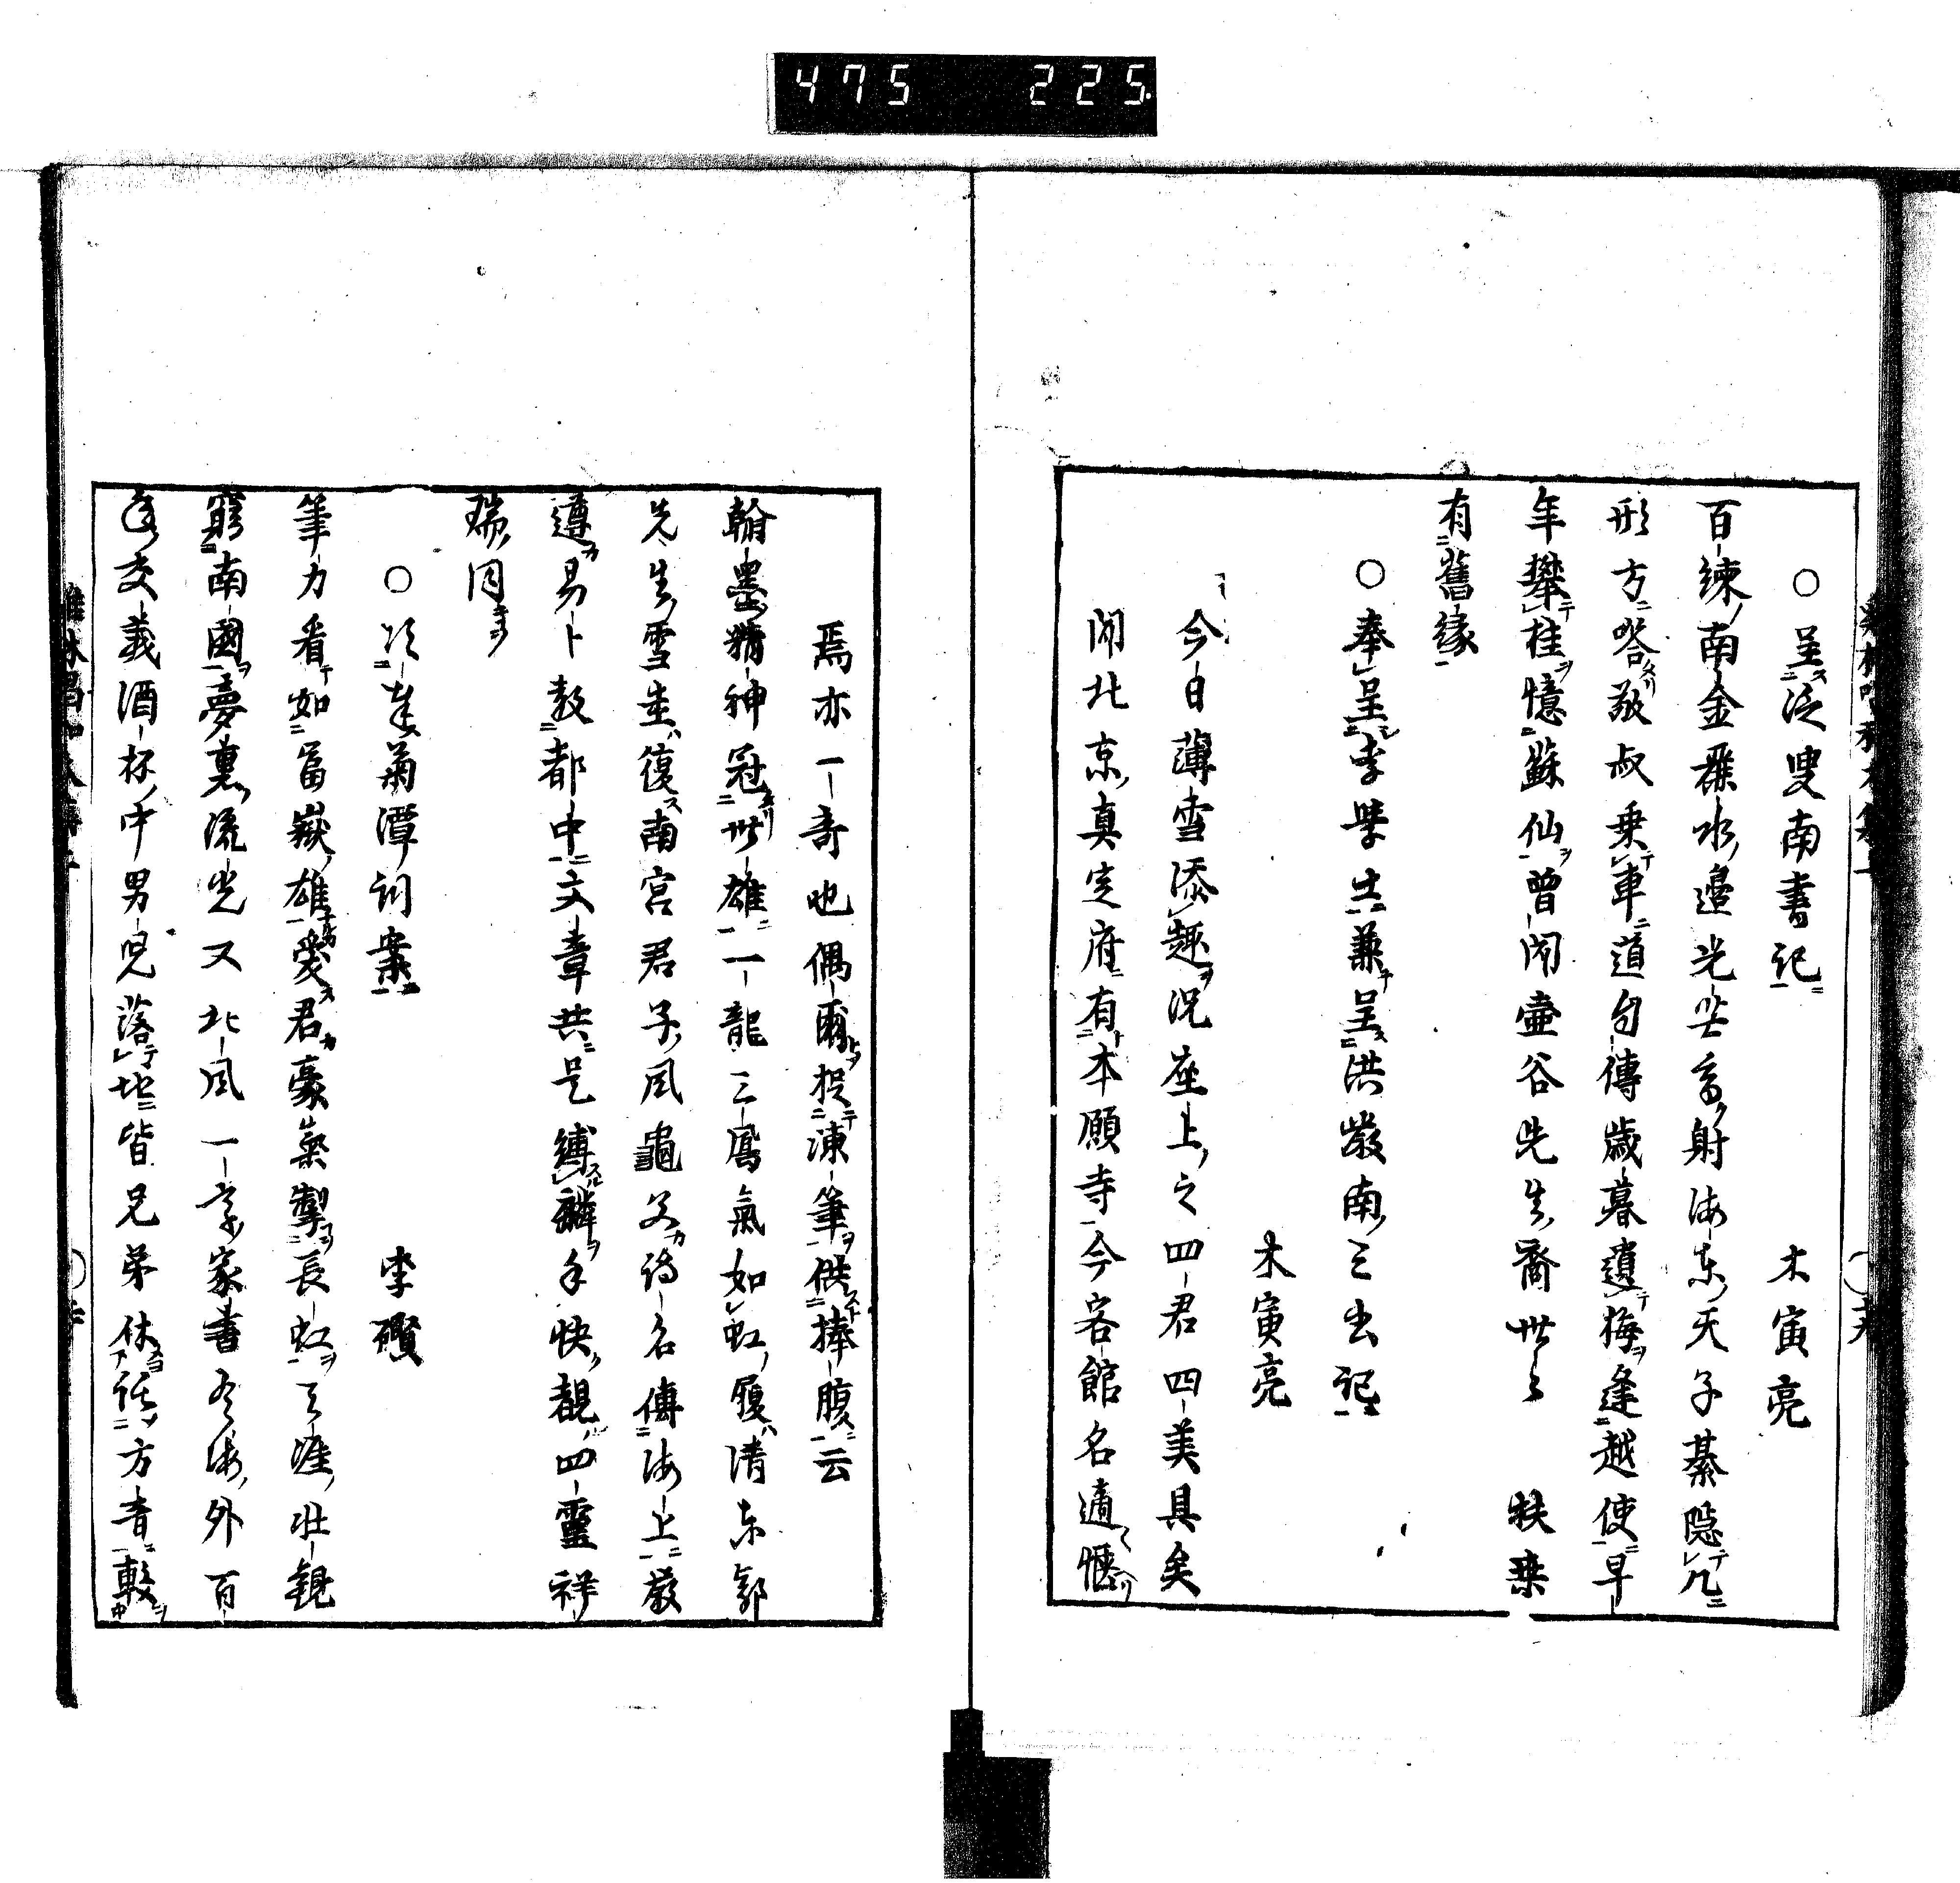 475 225
○呈泛叟南書記 木寅亮
百練南金麗水邊光芒多射海東天子綦隱几
形方嗒敬叔乗車道自傳歳暮遺梅逢越使早
年攀桂憶蘇仙曽聞壷谷先生裔世々 秩桒
有舊縁
○奉呈李学士兼呈洪嚴南三書記
木寅亮
今日薄雪添趣況座上之四君四美具矣
聞北京真定府有本願寺今客館名適愜
焉亦一奇也偶爾投凍筆供捧腹云
翰墨精神冠世雄一龍三鳳氣如虹履清東郭
先生雪坐復南宮君子風龜父詩名傳海上嚴
遵易卜数都中文章共是縛麟手快覩四靈祥
瑞同
○次奉菊潭詞案 李礥
筆力看如富嶽雄愛君豪氣掣長虹天涯壮観
窮南國夢裏流光又北風一字家書冬海外百
年交義酒杯中男児落地皆兄弟休話方音較